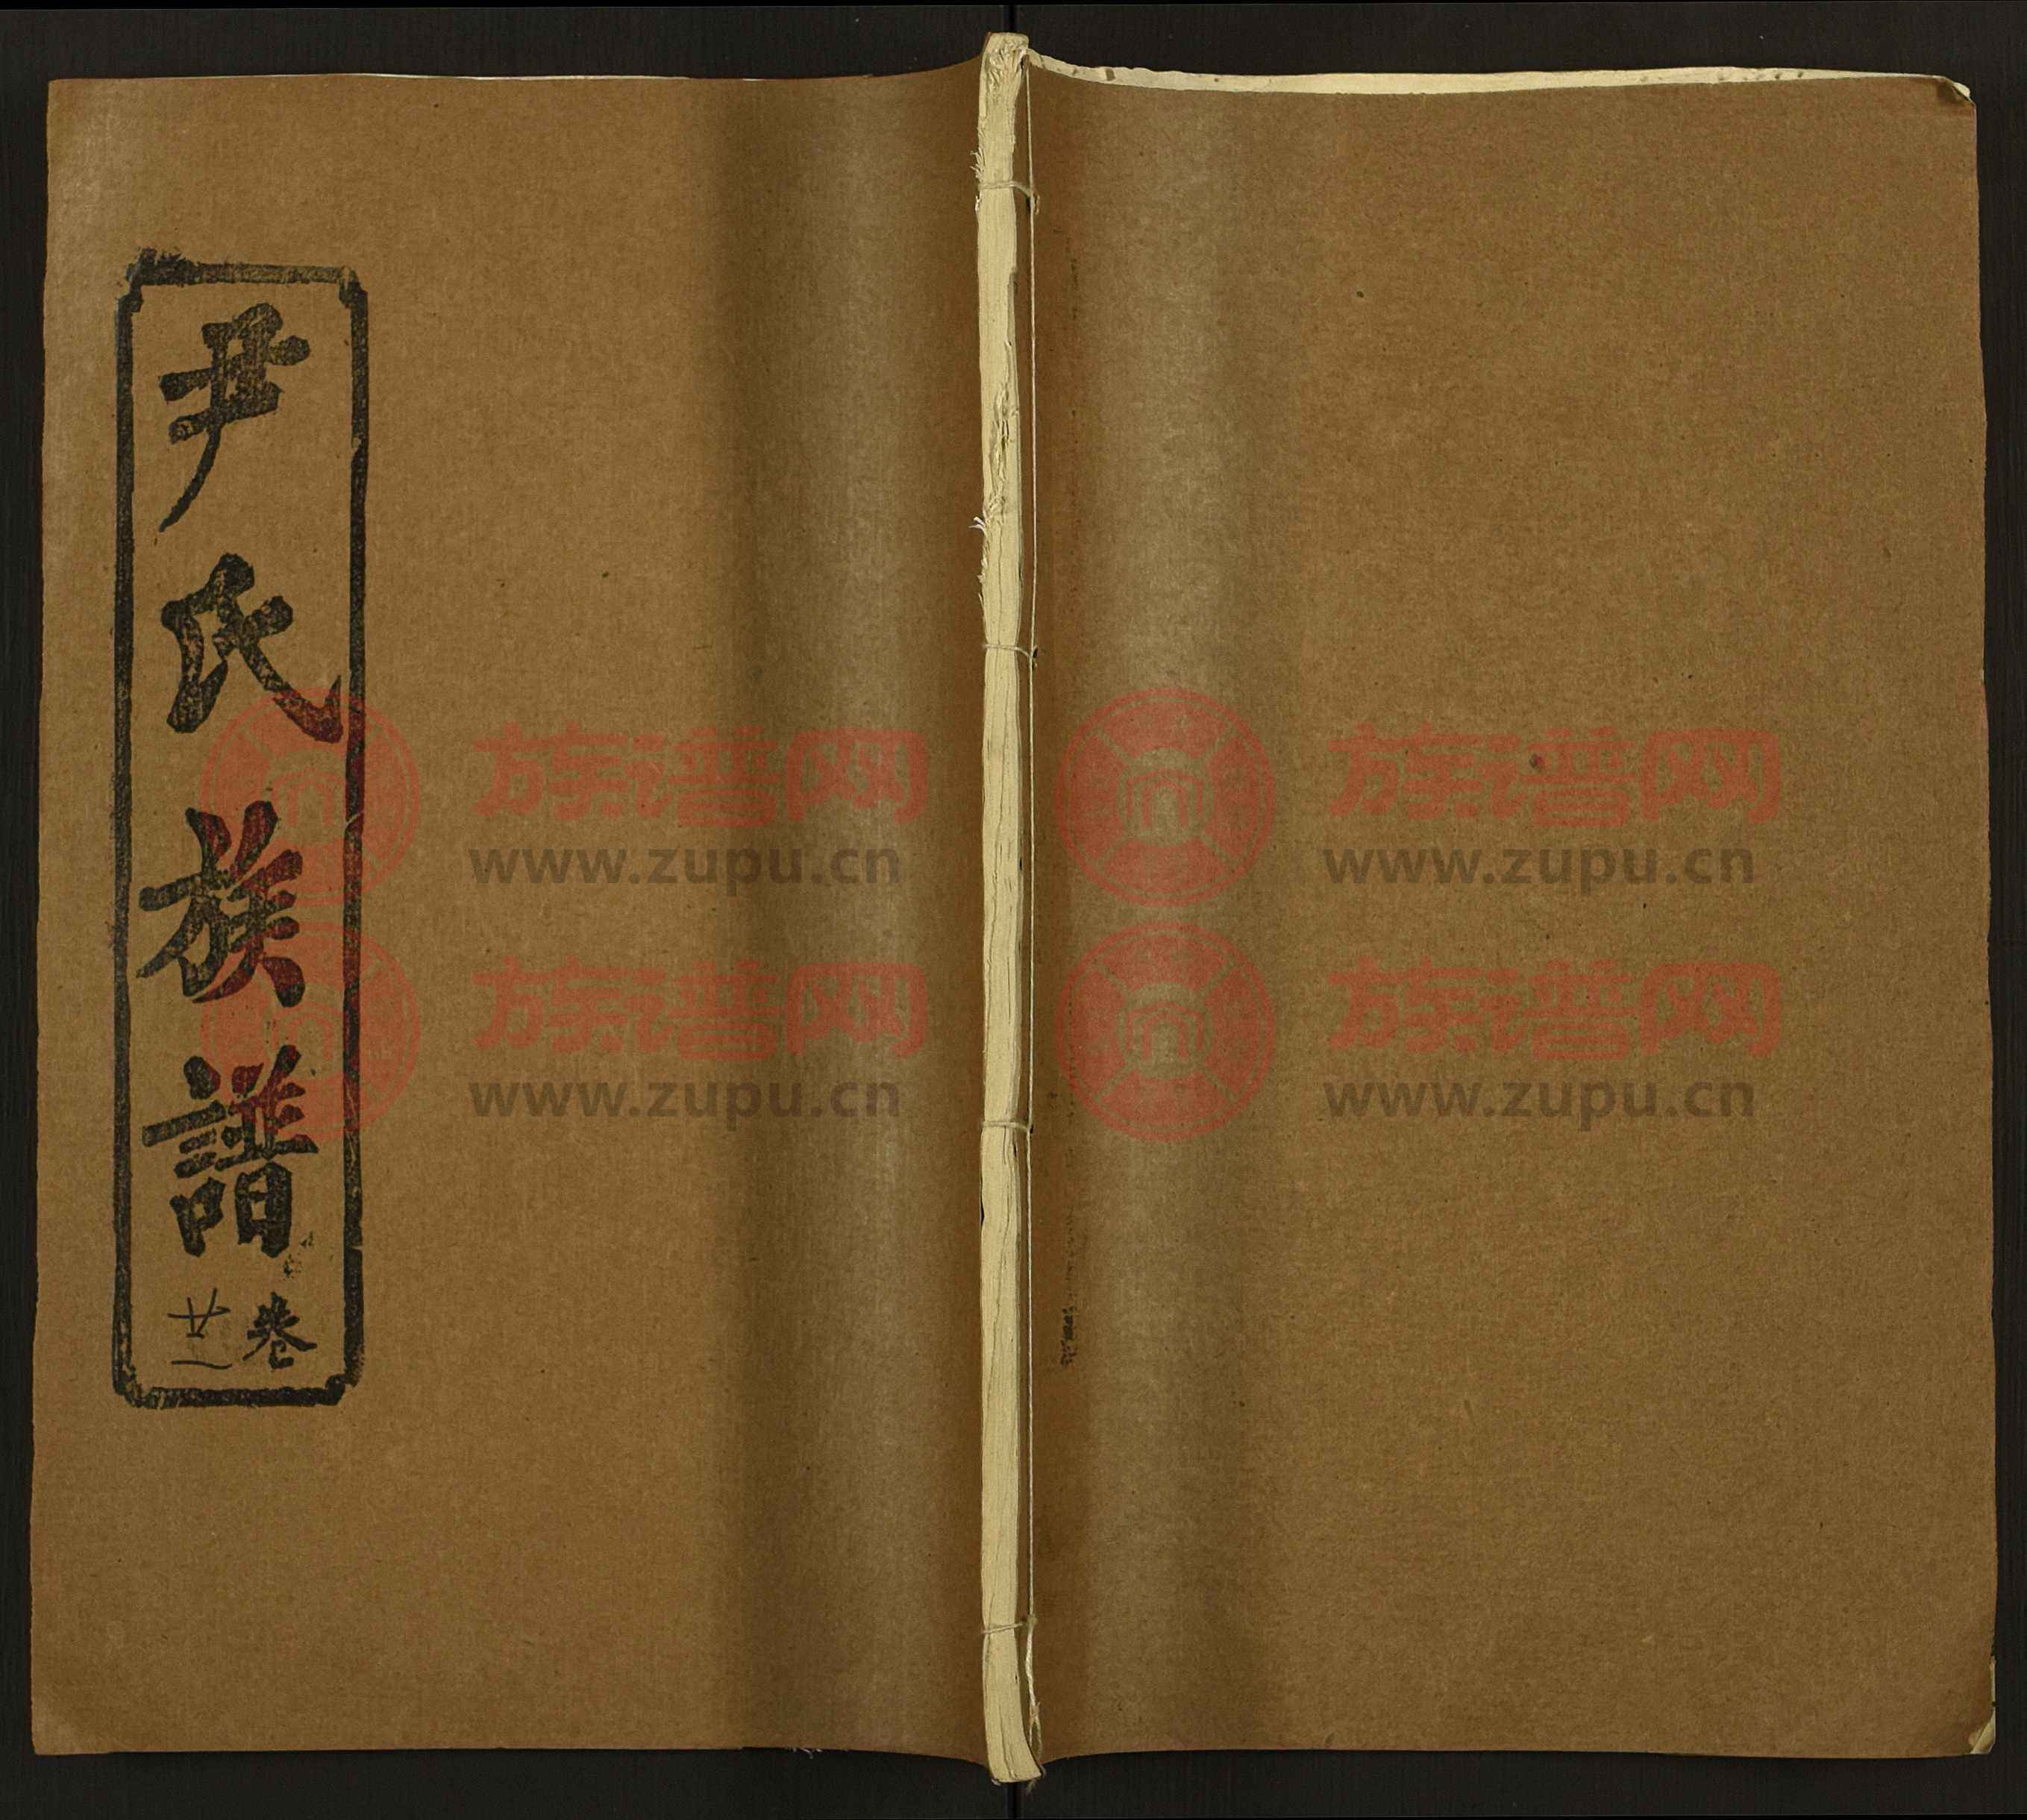 尹氏族譜
卷
廿一
族谱网
www.zupu.cn
族谱网
www.zupu.cn
族谱网
www.zupu.cn
族谱网
www.zupu.cn